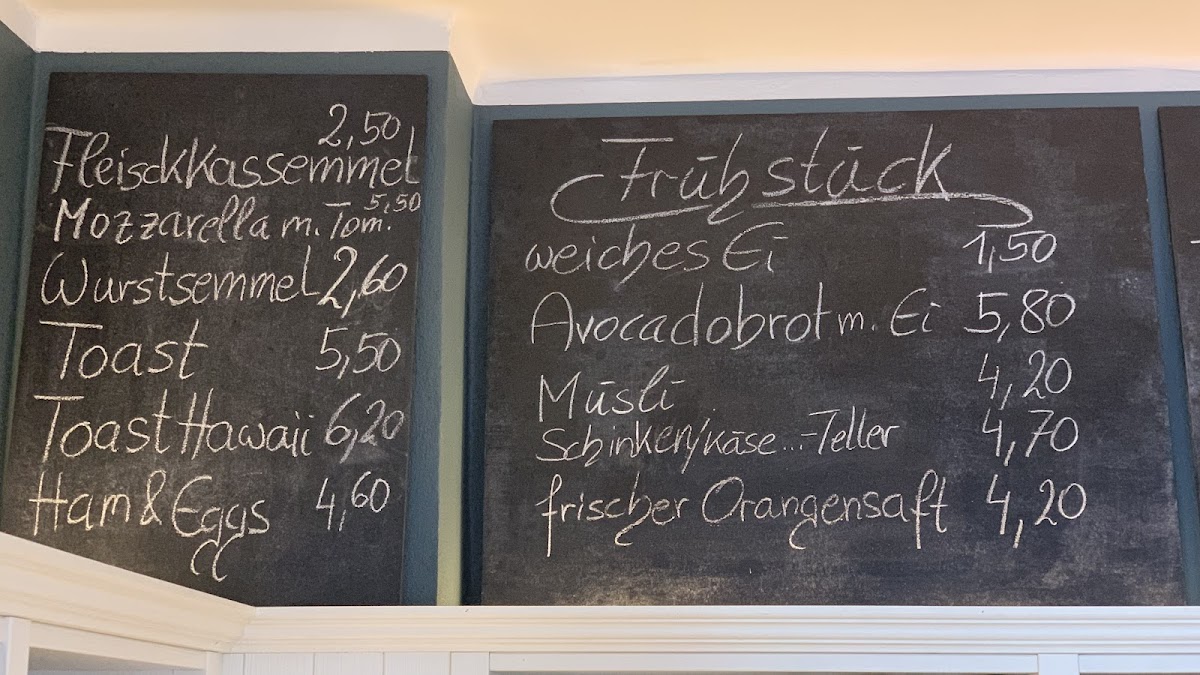 2,50
Fleischkassemmel
Mozzarella m. Tom. 5,50
Wurstsemmel 2,60
Toast 5,50
Toast Hawaii 6,20
Ham & Eggs 4,60
Frühstück
weiches Ei 1,50
Avocadobrot m. Ei 5,80
Müsli 4,20
Schinken/Käse...-Teller 4,70
frischer Orangensaft 4,20